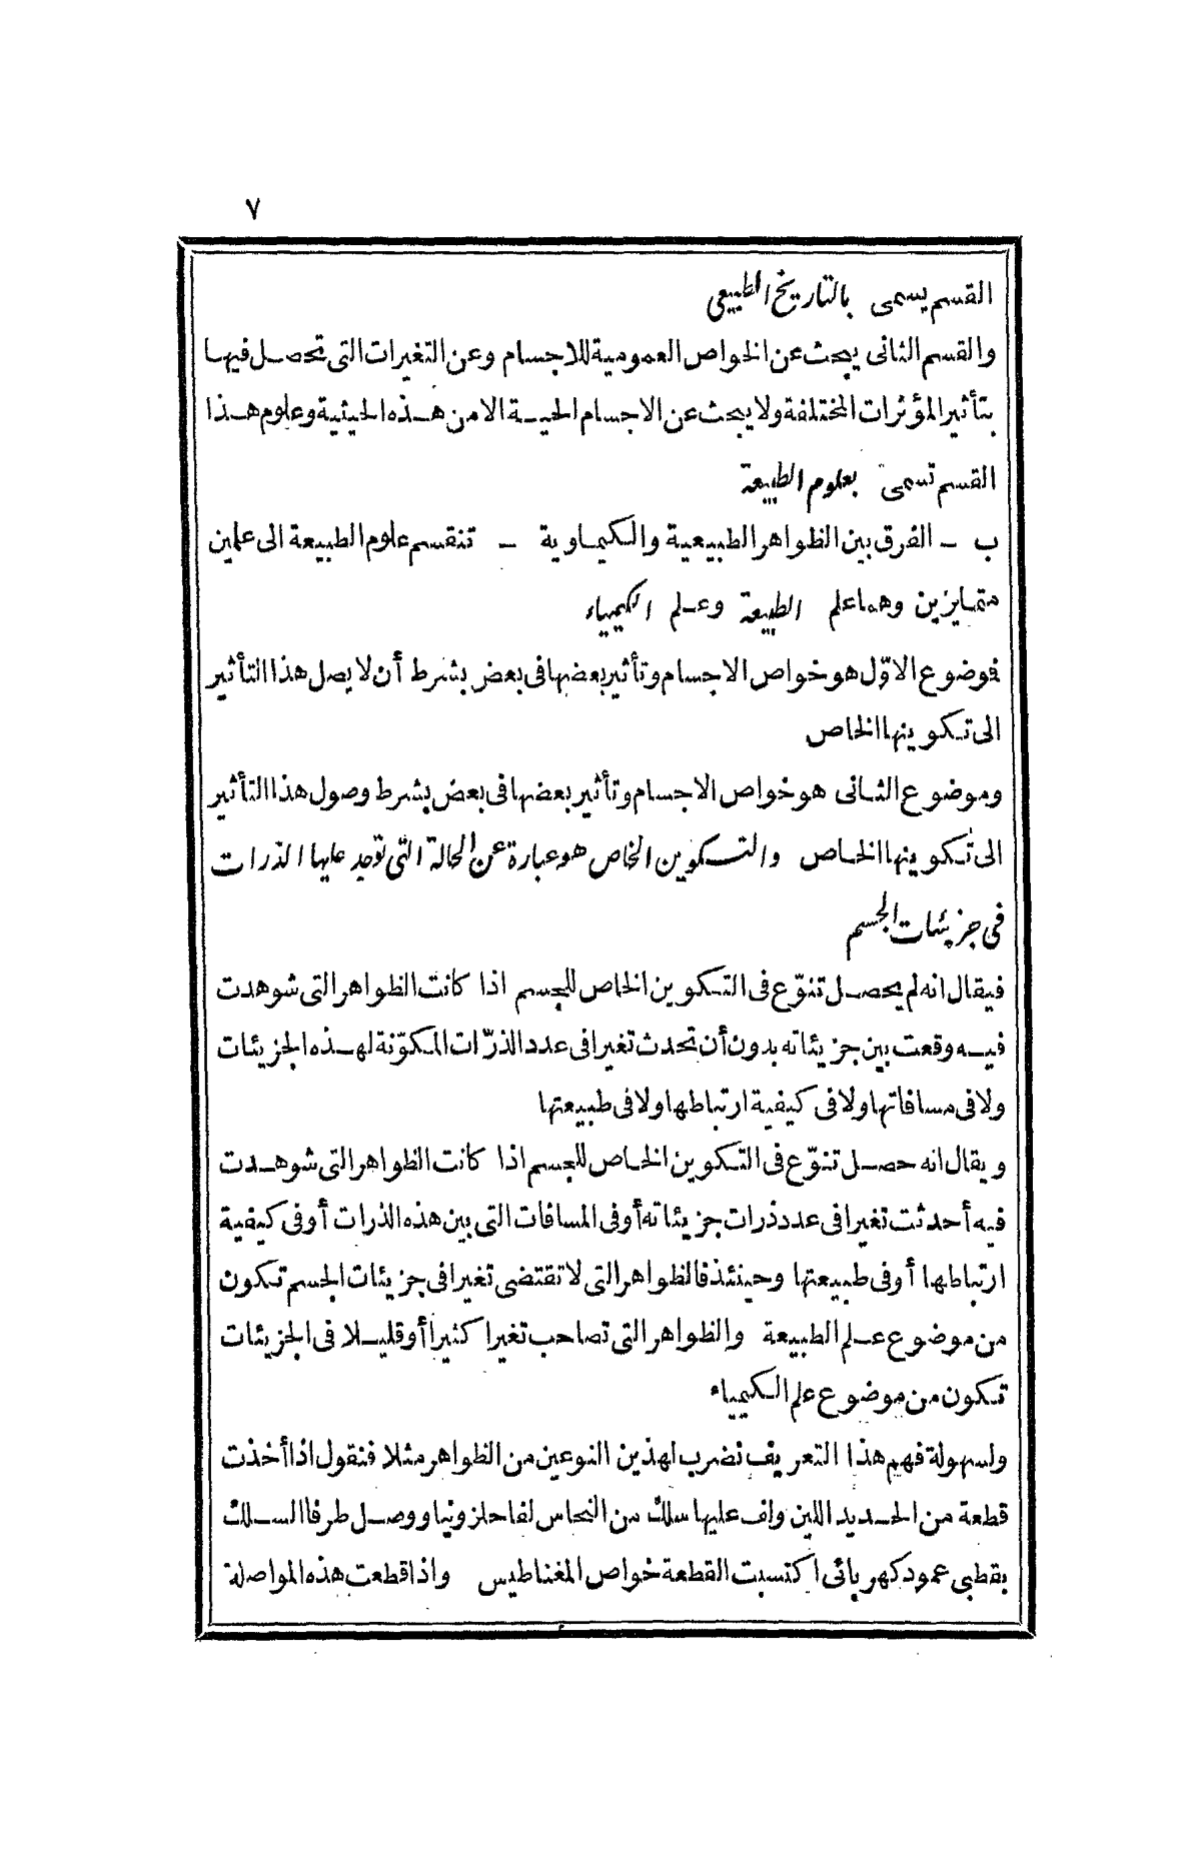 ٧
القسم يسمى بالتاريخ الطبيعى
والقسم الثانى يبحث عن الخواص العمومية للاجسام وعن التغيرات التى تحصل فيها
بتأثير المؤثرات المختلفة ولا يبحث عن الاجسام الحية الا من هذه الحيثية وعلوم هذا
القسم تسمى بعلوم الطبيعة
ب - الفرق بين الظواهر الطبيعية والكيماوية - تنقسم علوم الطبيعة الى علمين
متمايزين وهما علم الطبيعة وعلم الكيمياء
فوضوع الاوّل هو خواص الاجسام وتأثير بعضها فى بعض بشرط أن لا يصل هذا التأثير
الى تكوينها الخاص
وموضوع الثانى هو خواص الاجسام وتأثير بعضها فى بعض بشرط وصول هذا التأثير
الى تكوينها الخاص والتكوين الخاص هو عبارة عن الحالة التى توجد عليها الذرات
فى جزيئات الجسم
فيقال انه لم يحصل تنوّع فى التكوين الخاص للجسم اذا كانت الظواهر التى شوهدت
فيه وقعت بين جزيئاته بدون أن تحدث تغيرا فى عدد الذرّات المكوّنة لهذه الجزيئات
ولا فى مسافاتها ولا فى كيفية ارتباطها ولا فى طبيعتها
ويقال انه حصل تنوّع فى التكوين الخاص للجسم اذا كانت الظواهر التى شوهدت
فيه أحدثت تغيرا فى عدد ذرات جزيئاته أو فى المسافات التى بين هذه الذرات أو فى كيفية
ارتباطها أو فى طبيعتها وحينئذ فالظواهر التى لا تقتضى تغيرا فى جزيئات الجسم تكون
من موضوع علم الطبيعة والظواهر التى تصاحب تغيرا كثيرا أو قليلا فى الجزيئات
تكون من موضوع علم الكيمياء
ولسهولة فهم هذا التعريف نضرب لهذين النوعين من الظواهر مثلا فنقول اذا أخذت
قطعة من الحديد اللين ولف عليها سلك من النحاس لفا حلزونيا ووصل طرفا السلك
بقطبى عمود كهربائى اكتسبت القطعة خواص المغناطيس واذا قطعت هذه المواصلة